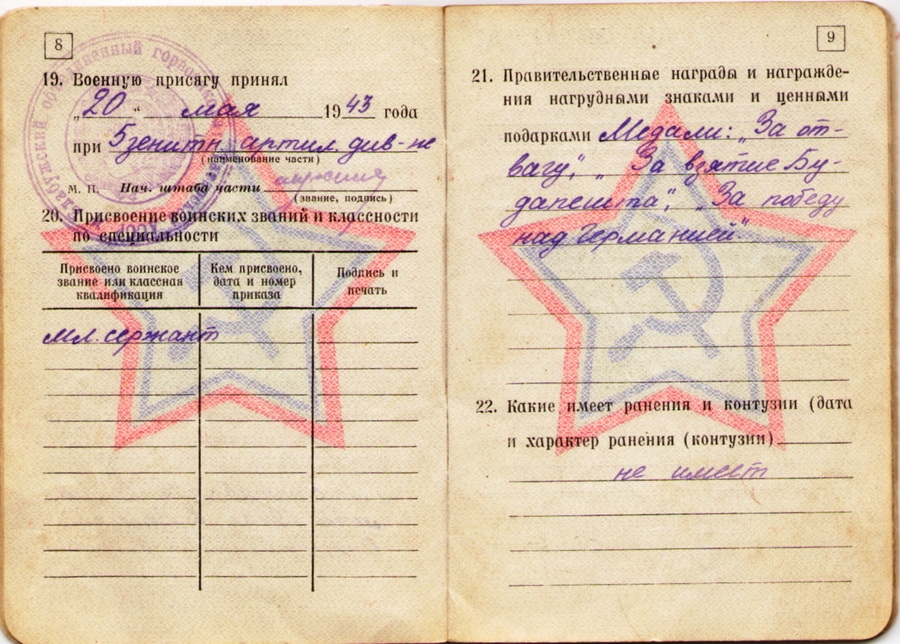 8
19. Военную присягу принял
„20“ мая 1943 года
при 5 зенитн. артил. див-не
(наименование части)
М. П. Нач. штаба части
(звание, подпись)
20. Присвоение воинских званий и классности
по специальности
Присвоено воинское
звание или классная
квалификация
Кем присвоено,
дата и номер
приказа
Подпись и
печать
мл. сержант
9
21. Правительственные награды и награжде-
ния нагрудными знаками и ценными
подарками Медали: „За от-
вагу“, „За взятие Бу-
дапешта“, „За победу
над Германией“
22. Какие имеет ранения и контузии (дата
и характер ранения (контузии)
не имеет